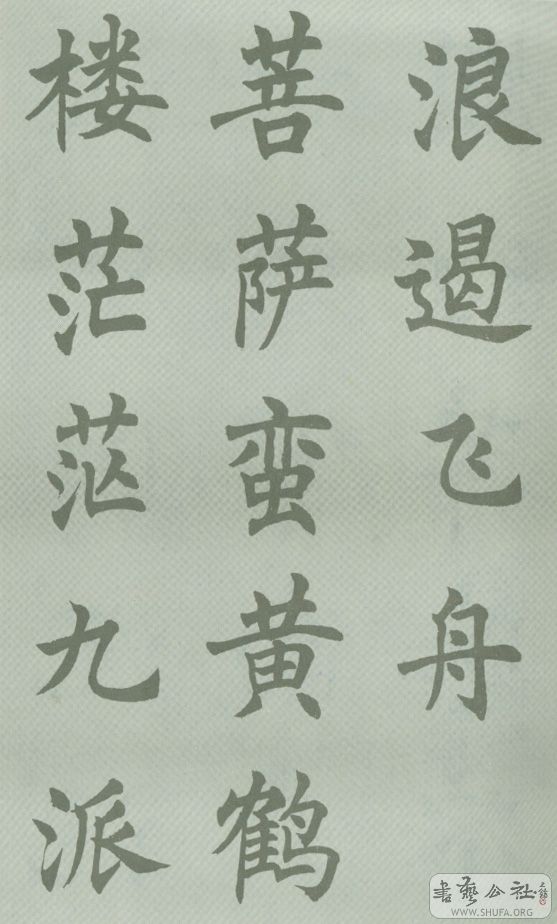 浪遏飞舟
菩萨蛮黄鹤
楼茫茫九派
書藝公社
WWW.SHUFA.ORG